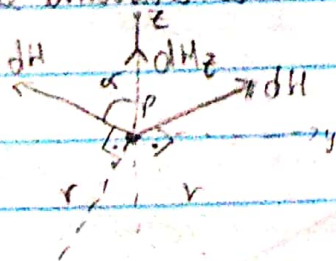 z
dH
dHz
α
dH
P
y
r
r